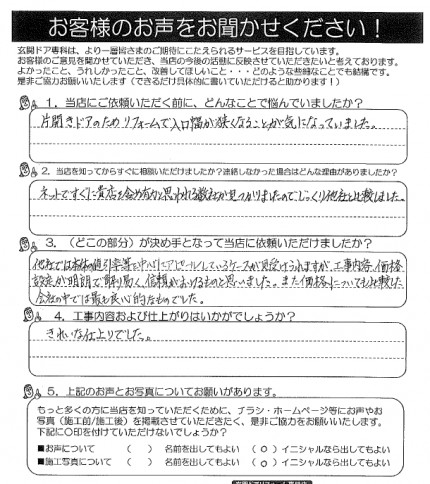 お客様のお声をお聞かせください！
玄関ドア専科は、より一層皆さまのご期待にこたえられるサービスを目指しています。
お客様のご意見を聞かせていただき、当店の今後の活動に反映させていただきたいと考えております。
よかったこと、うれしかったこと、改善してほしいこと・・・どのような些細なことでも結構です。
是非ご協力お願いします（できるだけ具体的に書いていただけると助かります！）
1．当店にご依頼いただく前に、どんなことで悩んでいましたか？
片開きドアのためリフォームで入口幅が狭くなることが気になっていました。
2．当店を知ってからすぐに相談いただけましたか？連絡しなかった場合はどんな理由がありましたか？
ネットですぐに貴店を含め良いと思われる数社が見つかりましたのでじっくり他社と比較しました。
3．（どこの部分）が決め手となって当店に依頼いただけましたか？
他社では本体の値引率等を中心にアピールしているケースが見受けられますが、工事内容、価格
設定が明朗で判り易く、信頼がおけるものと思いました。また価格についても比較した
会社の中では最も良い
4．工事内容および仕上がりはいかがでしょうか？
きれいな仕上りでした。
5．上記のお声とお写真についてお願いがあります。
もっと多くの方に当店を知っていただくために、チラシ・ホームページ等にお声やお
写真（施工前/施工後）を掲載させていただきたく、是非ご協力をお願いいたします。
下記に〇印を付けていただけないでしょうか？
■お声について （ ） 名前を出してもよい （ ○ ）イニシャルなら出してもよい
■施工写真について （ ） 名前を出してもよい （ ○ ）イニシャルなら出してもよい